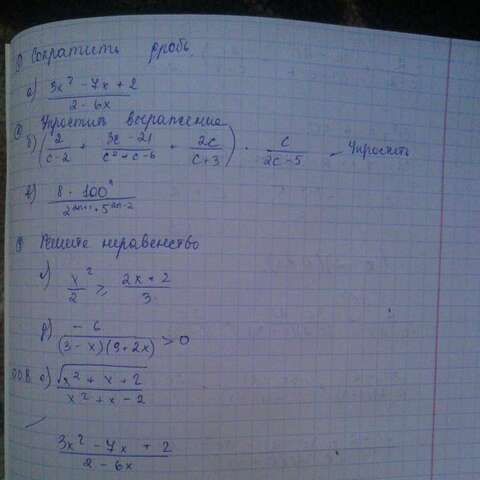 ① Сократить дробь
а) (3x² - 7x + 2) / (2 - 6x)
② Упростить выражение
б) (2/(c-2) + (3c - 21)/(c² + c - 6) + 2c/(c+3)) · c/(2c-5) Упростить
в) (8 · 100ⁿ) / (2²ⁿ⁺¹ · 5²ⁿ⁻²)
③ Решите неравенство
x²/2 ≥ (2x + 2)/3
д) -6 / ((3 - x)(9 + 2x)) > 0
О.О.В. √(x² + x + 2) / (x² + x - 2)
(3x² - 7x + 2) / (2 - 6x)